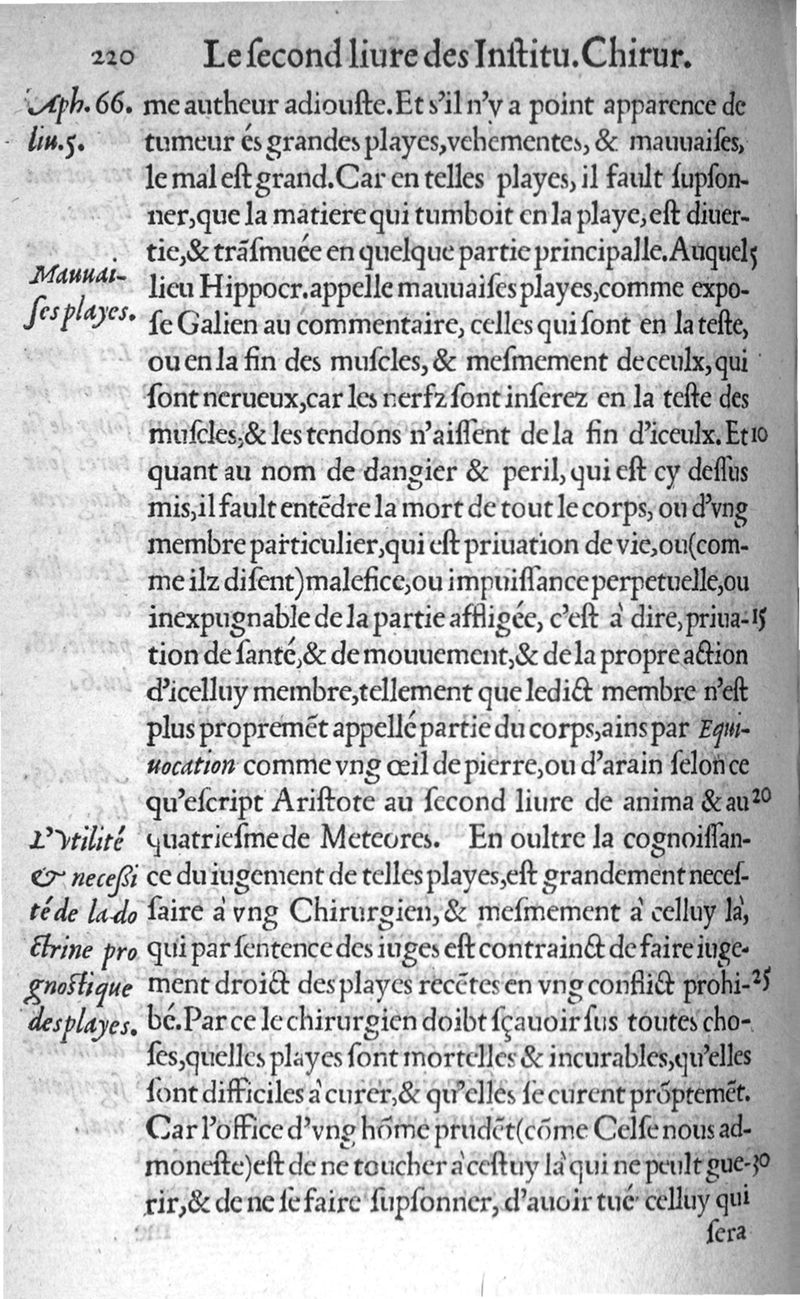 220 Le ſecond liure des Inſtitu. Chirur.
Aph. 66.
liu. 5.
me autheur adiouſte. Et s'il n'y a point apparence de
tumeur és grandes playes, vehementes, & mauuaiſes,
le mal eſt grand. Car en telles playes, il fault ſupſon-
ner, que la matiere qui tumboit en la playe, eſt diuer-
tie, & trãſmuée en quelque partie principalle. Auquel 5
Mauuai-
ſes playes.
lieu Hippocr. appelle mauuaiſes playes, comme expo-
ſe Galien au commentaire, celles qui ſont en la teſte,
ou en la fin des muſcles, & meſmement de ceulx, qui
ſont nerueux, car les nerfz ſont inſerez en la teſte des
muſcles, & les tendons n'aiſſent de la fin d'iceulx. Et 10
quant au nom de dangier & peril, qui eſt cy deſſus
mis, il fault entẽdre la mort de tout le corps, ou d'vng
membre particulier, qui eſt priuation de vie, ou (com-
me ilz diſent) malefice, ou impuiſſance perpetuelle, ou
inexpugnable de la partie affligée, c'eſt à dire, priua- 15
tion de ſanté, & de mouuement, & de la propre action
d'icelluy membre, tellement que ledict membre n'eſt
plus propremẽt appellé partie du corps, ains par Equi-
uocation comme vng œil de pierre, ou d'arain ſelon ce
qu'eſcript Ariſtote au ſecond liure de anima & au 20
L'vtilité
& neceſſi
té de la do
ctrine pro
gnoſtique
des playes.
quatrieſme de Meteores. En oultre la cognoiſſan-
ce du iugement de telles playes, eſt grandement neceſ-
ſaire à vng Chirurgien, & meſmement à celluy là,
qui par ſentence des iuges eſt contrainct de faire iuge-
ment droict des playes recẽtes en vng conflict prohi- 25
bé. Par ce le chirurgien doibt ſçauoir ſus toutes cho-
ſes, quelles playes ſont mortelles & incurables, qu'elles
ſont difficiles à curer, & qu'elles ſe curent prõptemẽt.
Car l'office d'vng hõme prudẽt (cõme Celſe nous ad-
moneſte) eſt de ne toucher à ceſtuy là qui ne peult gue- 30
rir, & de ne ſe faire ſupſonner, d'auoir tué celluy qui
ſera